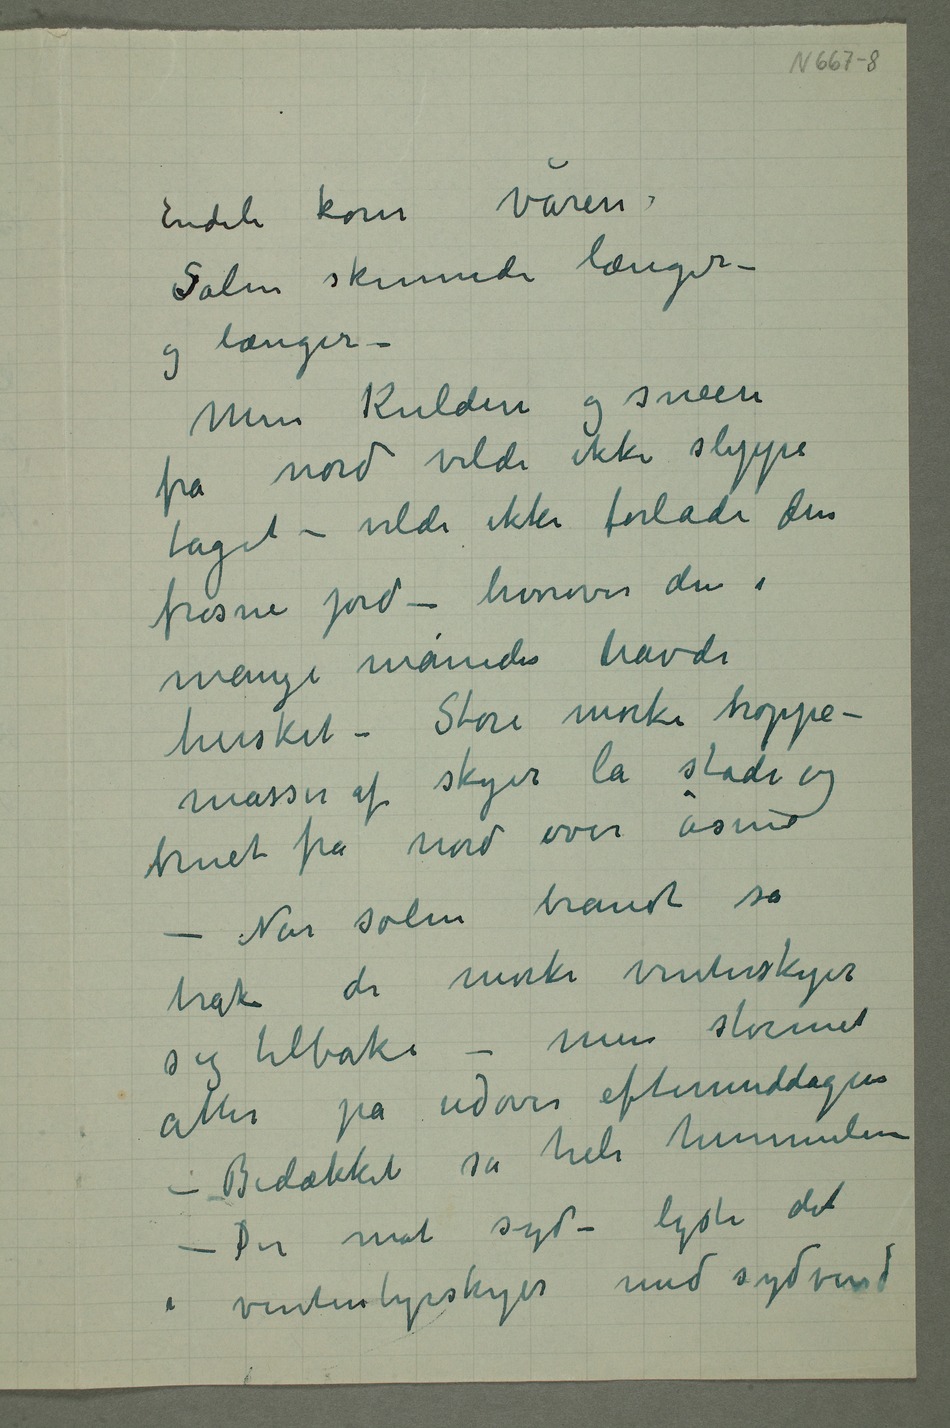 N667-8
Endeli kom våren,
Solen skinnede længer –
og længer –
Men Kulden og sneen
fra nord vilde ikke slippe
taget – vilde ikke forlade den
frosne jord – hvorover den i
mange måneder havde
hersket – Store mørke troppe-
masser af skyer lå stade og
truet fra nord over åsene
– Når solen brandt så
trak de mørke vinterskyer
sig tilbake – men stormet
atter på udover eftermiddagen
– Bedækket så hele himmelen
– Der mot syd – lyste det
i med sydvind